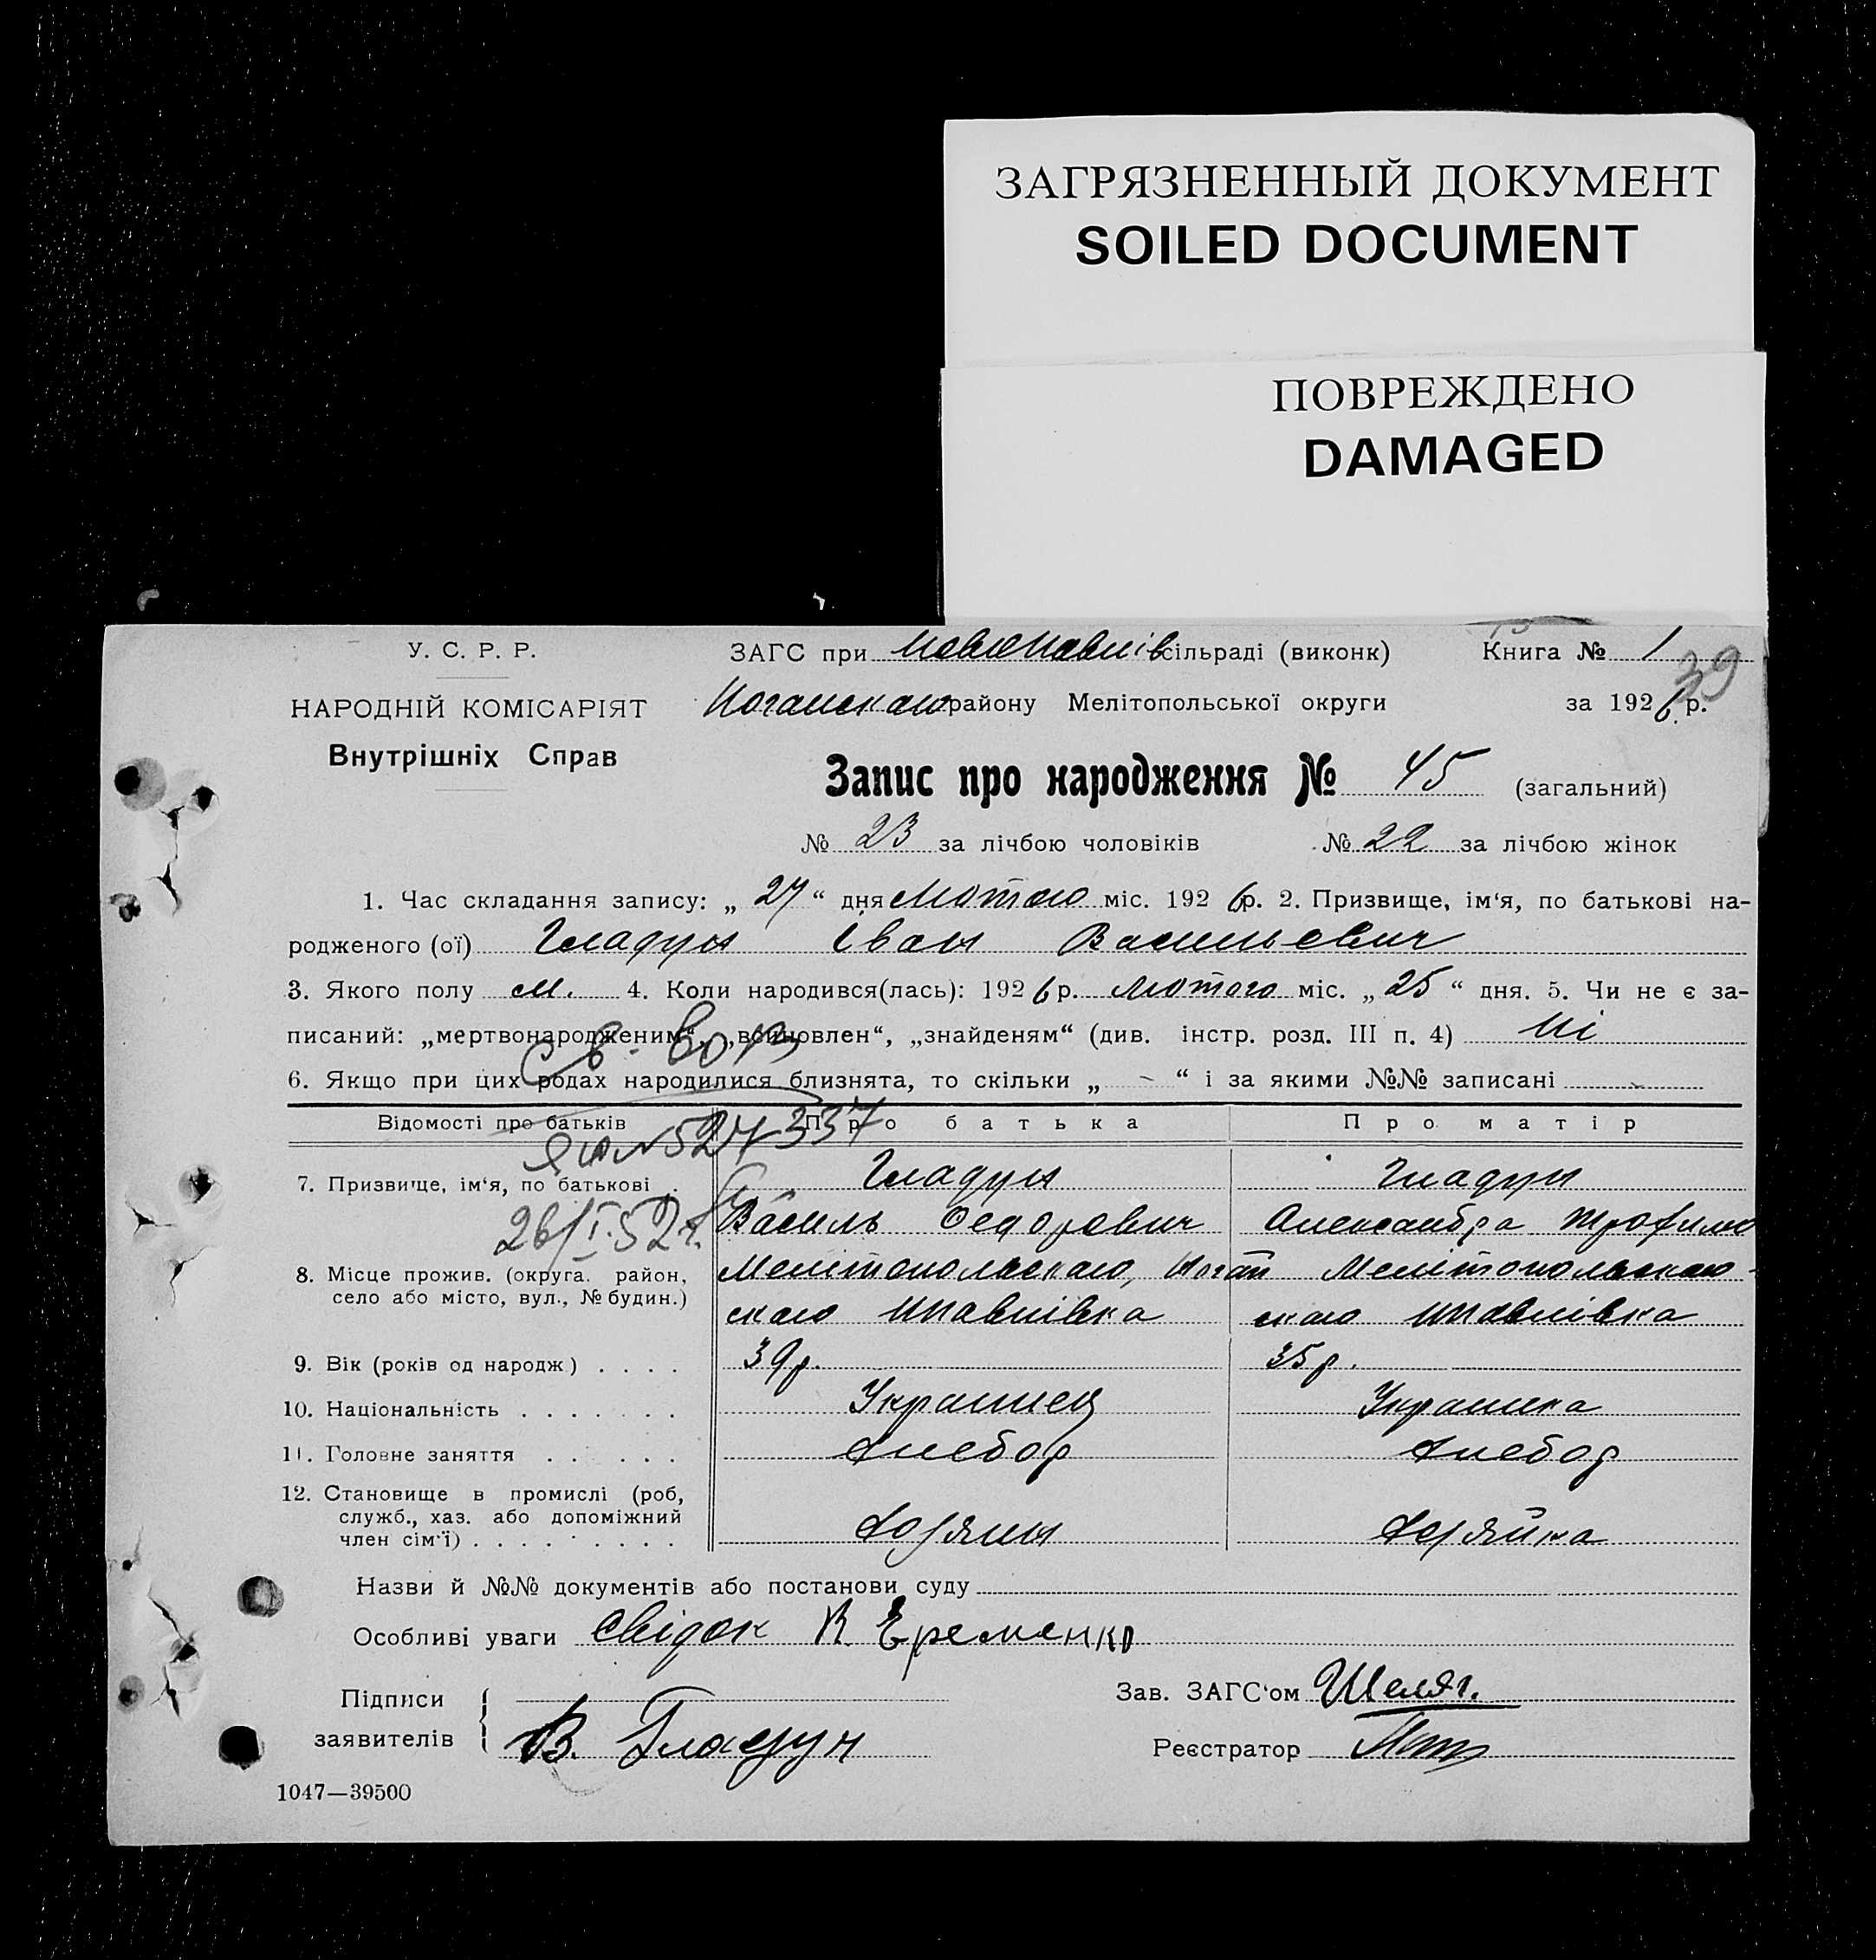 ЗАГРЯЗНЕННЫЙ ДОКУМЕНТ
SOILED DOCUMENT
ПОВРЕЖДЕНО
DAMAGED
У. С. Р. Р.
НАРОДНІЙ КОМІСАРІЯТ
Внутрішніх Справ
ЗАГС при Новопавлів сільраді (виконк)
Книга № 1
39
Ногайського району Мелітопольської округи
за 1926 р.
Запис про народження № 45 (загальний)
№ 23 за лічбою чоловіків № 22 за лічбою жінок
1. Час складання запису: „ 27 “ дня Лютого міс. 1926 р. 2. Призвище, ім‘я, по батькові на-
родженого (ої) Гладун Іван Васильевич
3. Якого полу м. 4. Коли народився(лась): 1926 р. лютого міс. „ 25 “ дня. 5. Чи не є за-
писаний: „мертвонародженим“, „всиновлен“, „знайденям“ (див. інстр. розд. III п. 4) Ні
6. Якщо при цих родах народилися близнята, то скільки „ - “ і за якими №№ записані -
Відомості про батьків Про батька Про матір
№ 527337
26/I.52 г.
7. Призвище, ім‘я, по батькові Гладун Гладун
Василь Федорович Александра Трофимо
8. Місце прожив. (округа. район, село або місто, вул., № будин.) Мелітопольского, Ногай Мелітопольского
ского Нпавлівка ского Нпавлівка
9. Вік (років од народж) . . . . 39 р. 35 р.
10. Національність . . . . . . . Украинец Украинка
11. Головне заняття . . . . . . Хлебор Хлебор
12. Становище в промислі (роб, служб., хаз. або допоміжний член сім‘ї) . . . . . . . . . Хозяин Хозяйка
Назви й №№ документів або постанови суду
Особливі уваги Свідок В Еременко
Підписи заявителів В. Гладун
Зав. ЗАГС‘ом
Реєстратор
1047—39500